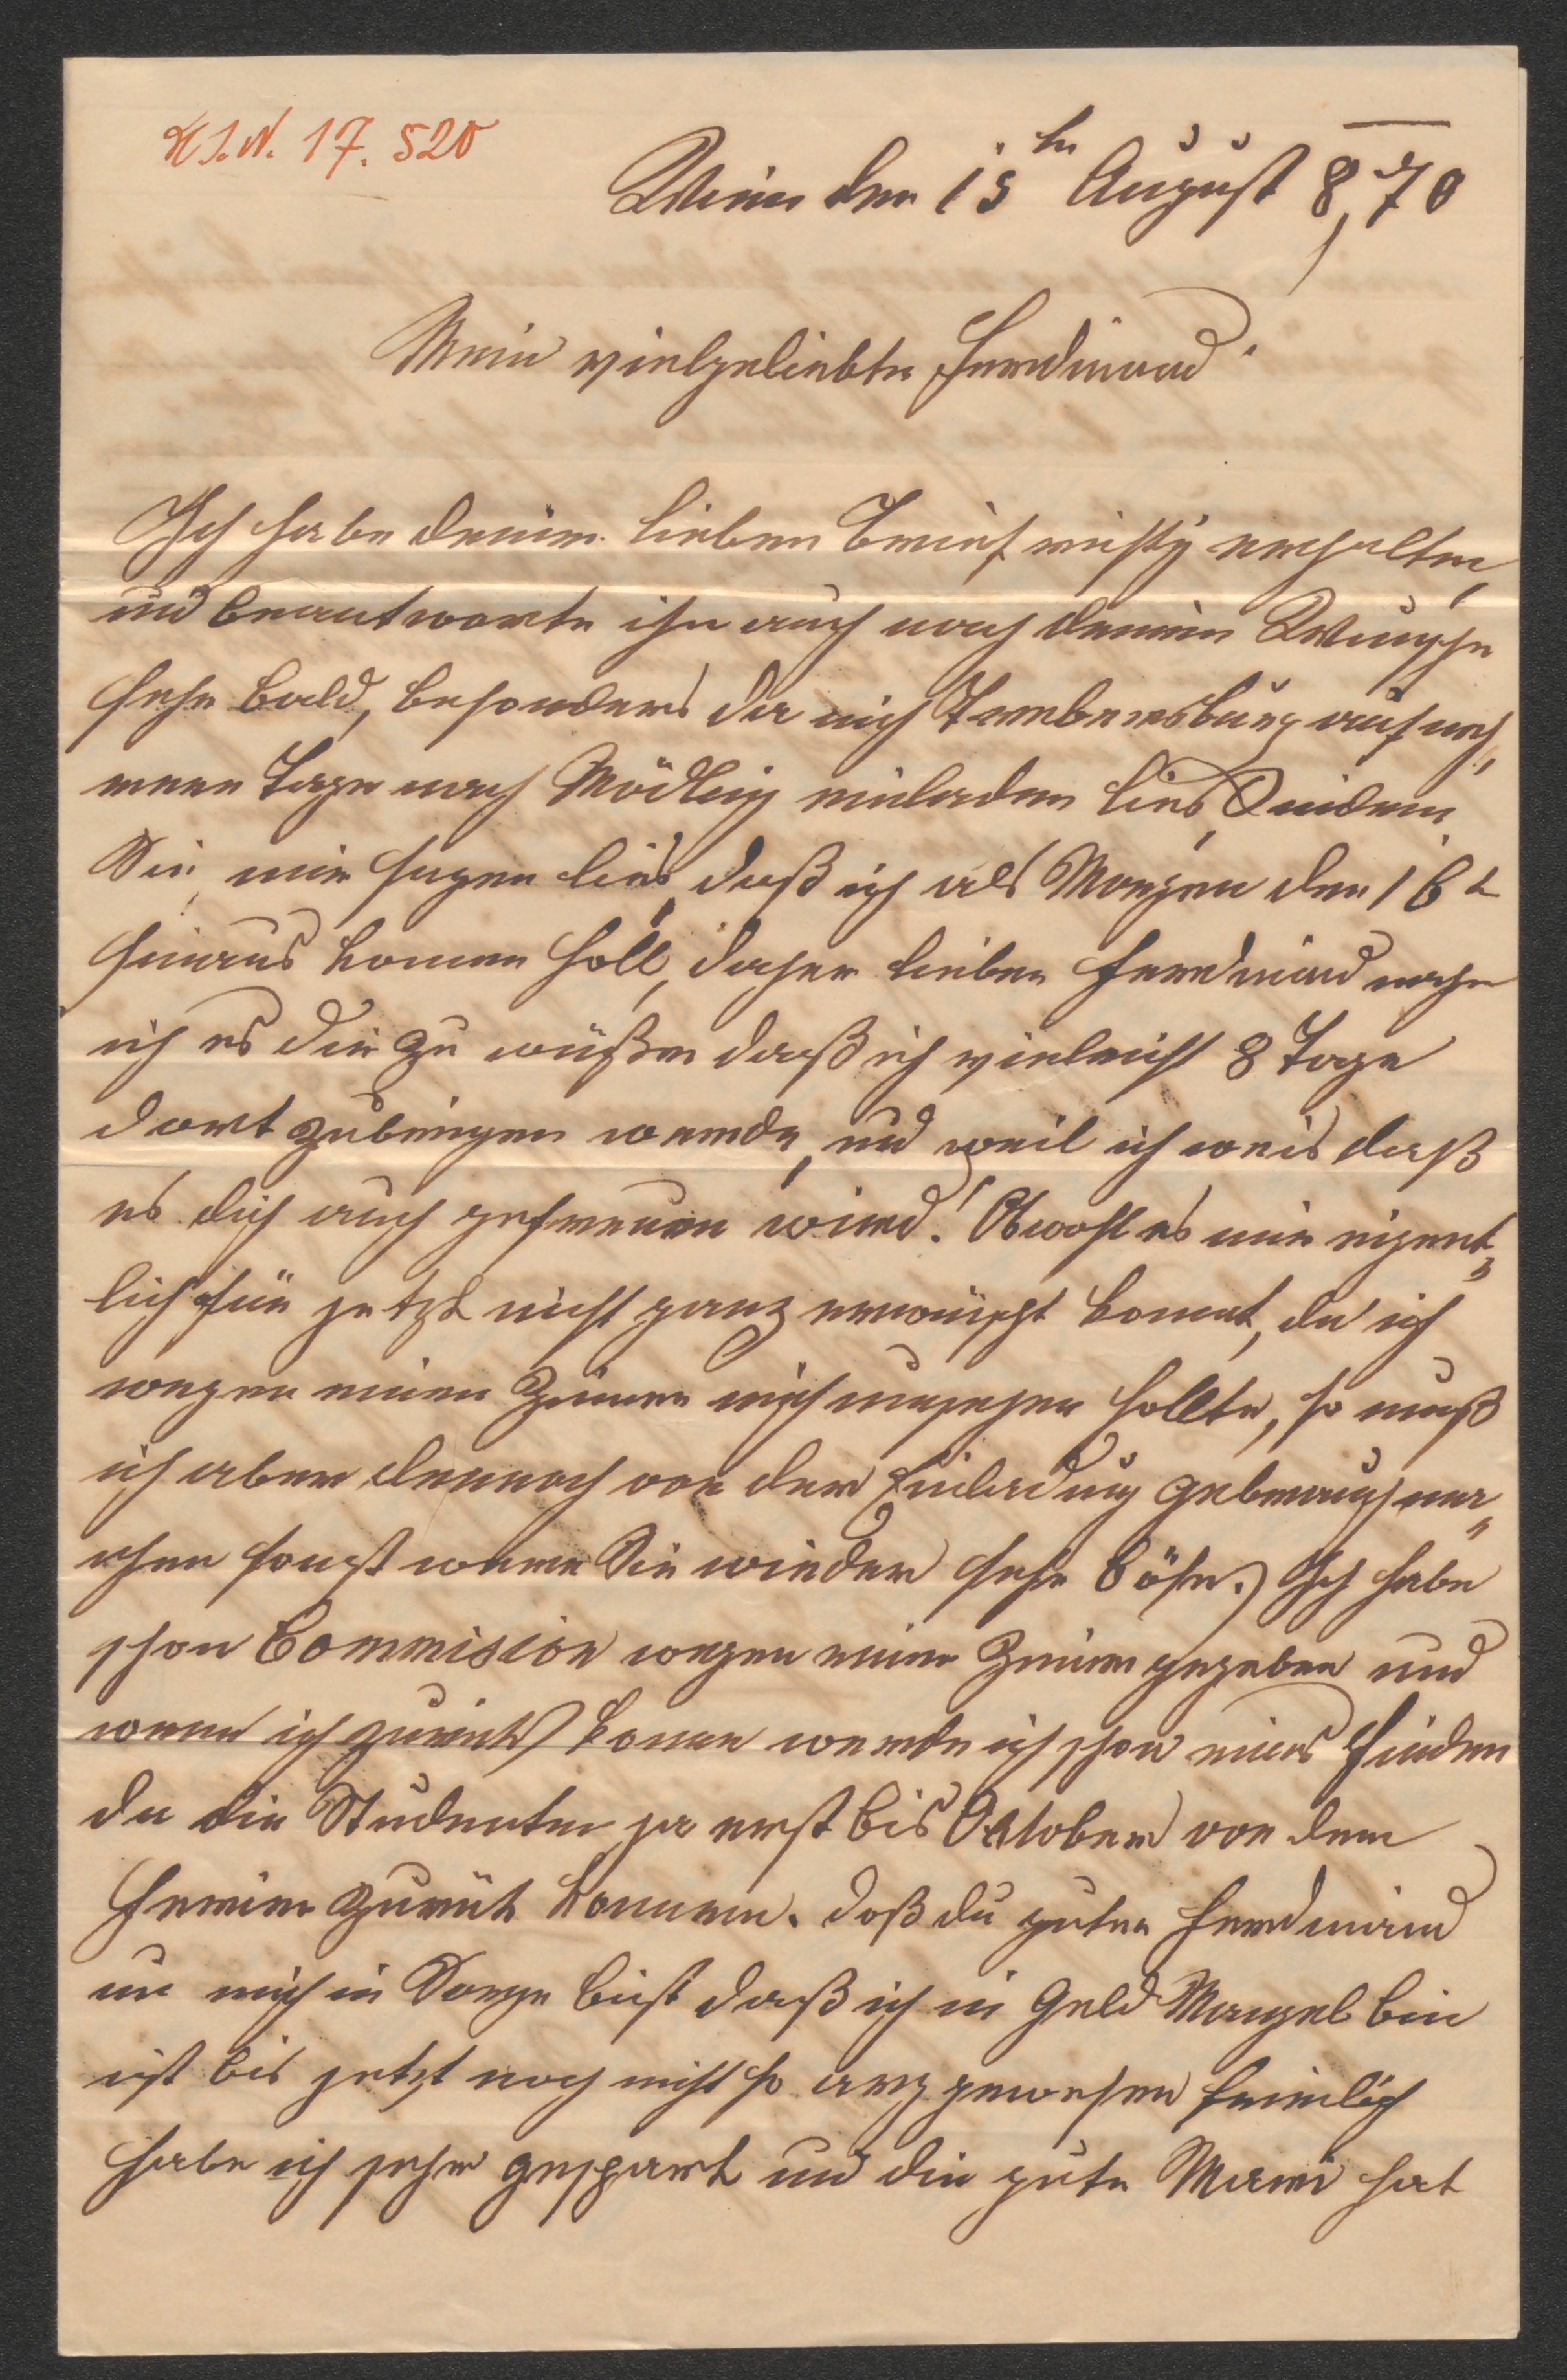 H.I.N. 17.520
Wien den 15tn August 870
Mein vielgeliebter Ferdinand
Ich habe deinen lieben Brief richtig erhalten,
und beantworte ihn auch nach deinem Wunsche
sehr bald, besonders da mich auf meh„
rere Tage nach Mödling einladen lies, indem
Sie mir sagen lies, daß ich als Morgen den 16t
hinaus komen soll, daher lieber Ferdinand mache
ich es dir zu wüßen daß ich vieleicht 8 Tage
dort zubringen werde, und weil ich weis daß
es dich auch gefreuen wird! Obwohl es mir eigent„
lich für jetzt nicht ganz erwünscht komt, da ich
wegen einen Zimer mich umsehen sollte, so muß
ich aber dennoch von der Einladung gebrauch ma„
chen sonst were Sie wieder sehr böse. Ich habe
schon Commision wegen einen Zimer gegeben und
wenn ich zurück kome werde ich schon eines finden
da die Studenten ja erst bis October von dem
Ferien zurük kommen. daß du guter Ferdinand
um mich in Sorge bist daß ich in Geld Mangel bin
ist bis jetzt noch nicht so arg gewesen freilich
habe ich sehr gespart und die gute Mami hat